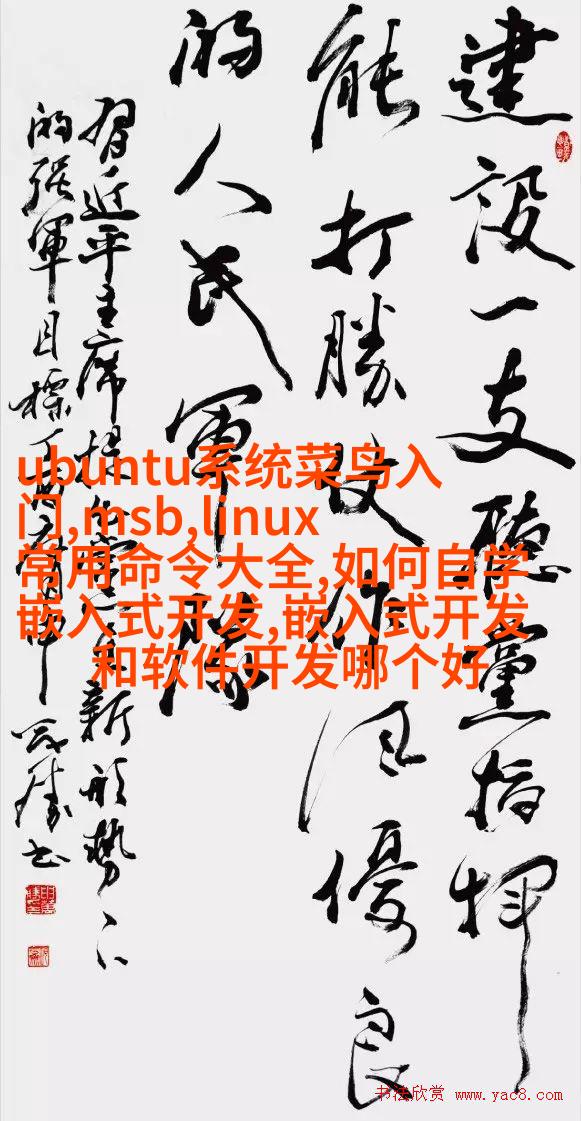 建設一支聽黨指揮
能打勝仗作風優良
的人民軍隊
習近平主席提出黨在新形勢下
的强軍目標
ubuntu系统菜鸟入
门,msb,linux
常用命令大全,如何自学
嵌入式开发,嵌入式开发
和软件开发哪个好
书法欣赏 www.yac8.com